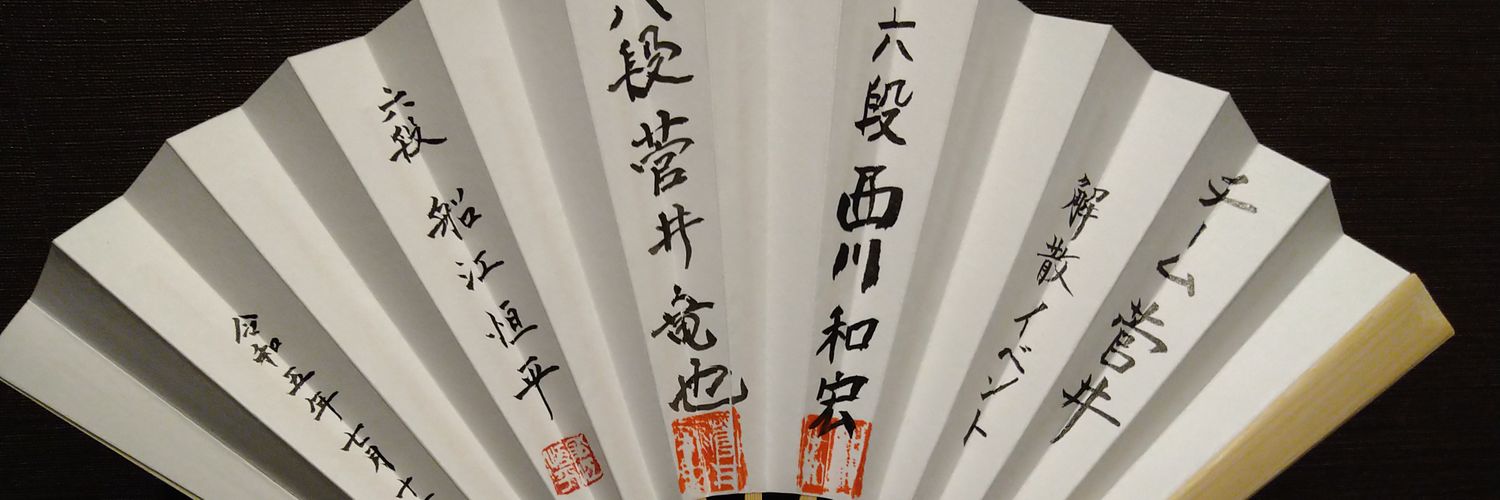 チーム菅井
解散イベント
六段 西川和宏
八段 菅井竜也
六段 船江恒平
令和五年七月十